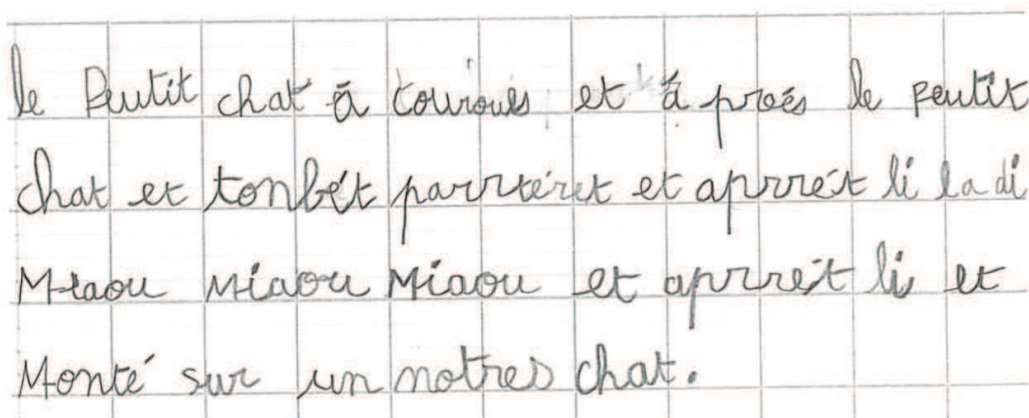 le Peutit chat à couroues et à proès le peutit
chat et tonbét parrtéret et aprrét li la di
Miaou Miaou Miaou et aprrét li et
Monté sur un notres chat.